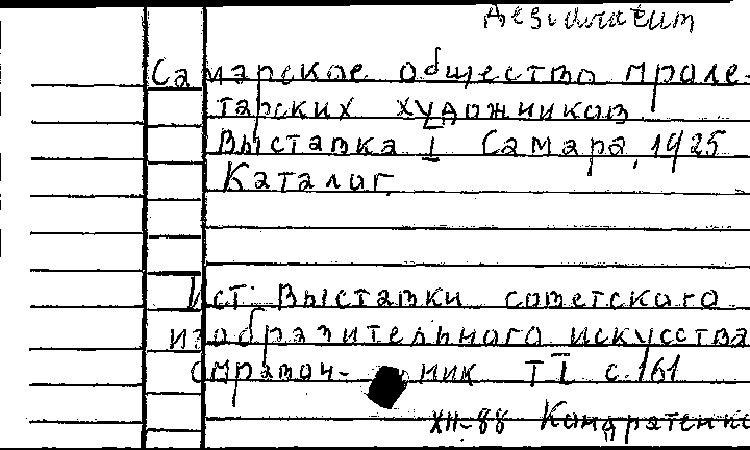 Desideratum
Самарское общество проле-
тарских художников
Выставка I Самара, 1925
Каталог
Ист: Выставки советского
изобразительного искусства
справоч- ник Т I с. 161
XII-88 Кондратенко